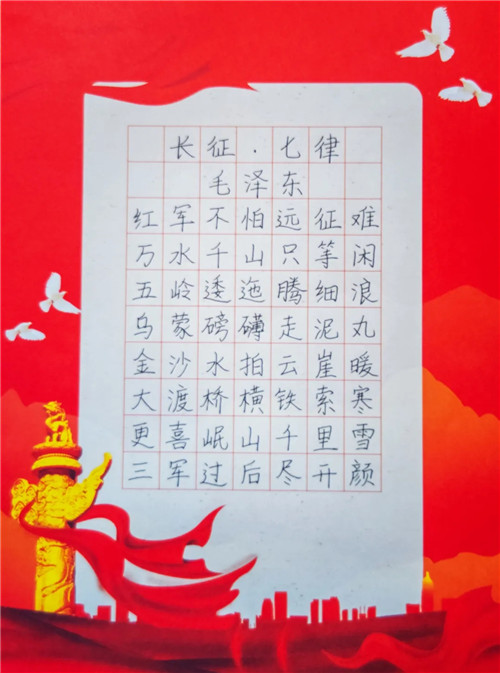 长征·七律
毛泽东
红军不怕远征难
万水千山只等闲
五岭逶迤腾细浪
乌蒙磅礴走泥丸
金沙水拍云崖暖
大渡桥横铁索寒
更喜岷山千里雪
三军过后尽开颜